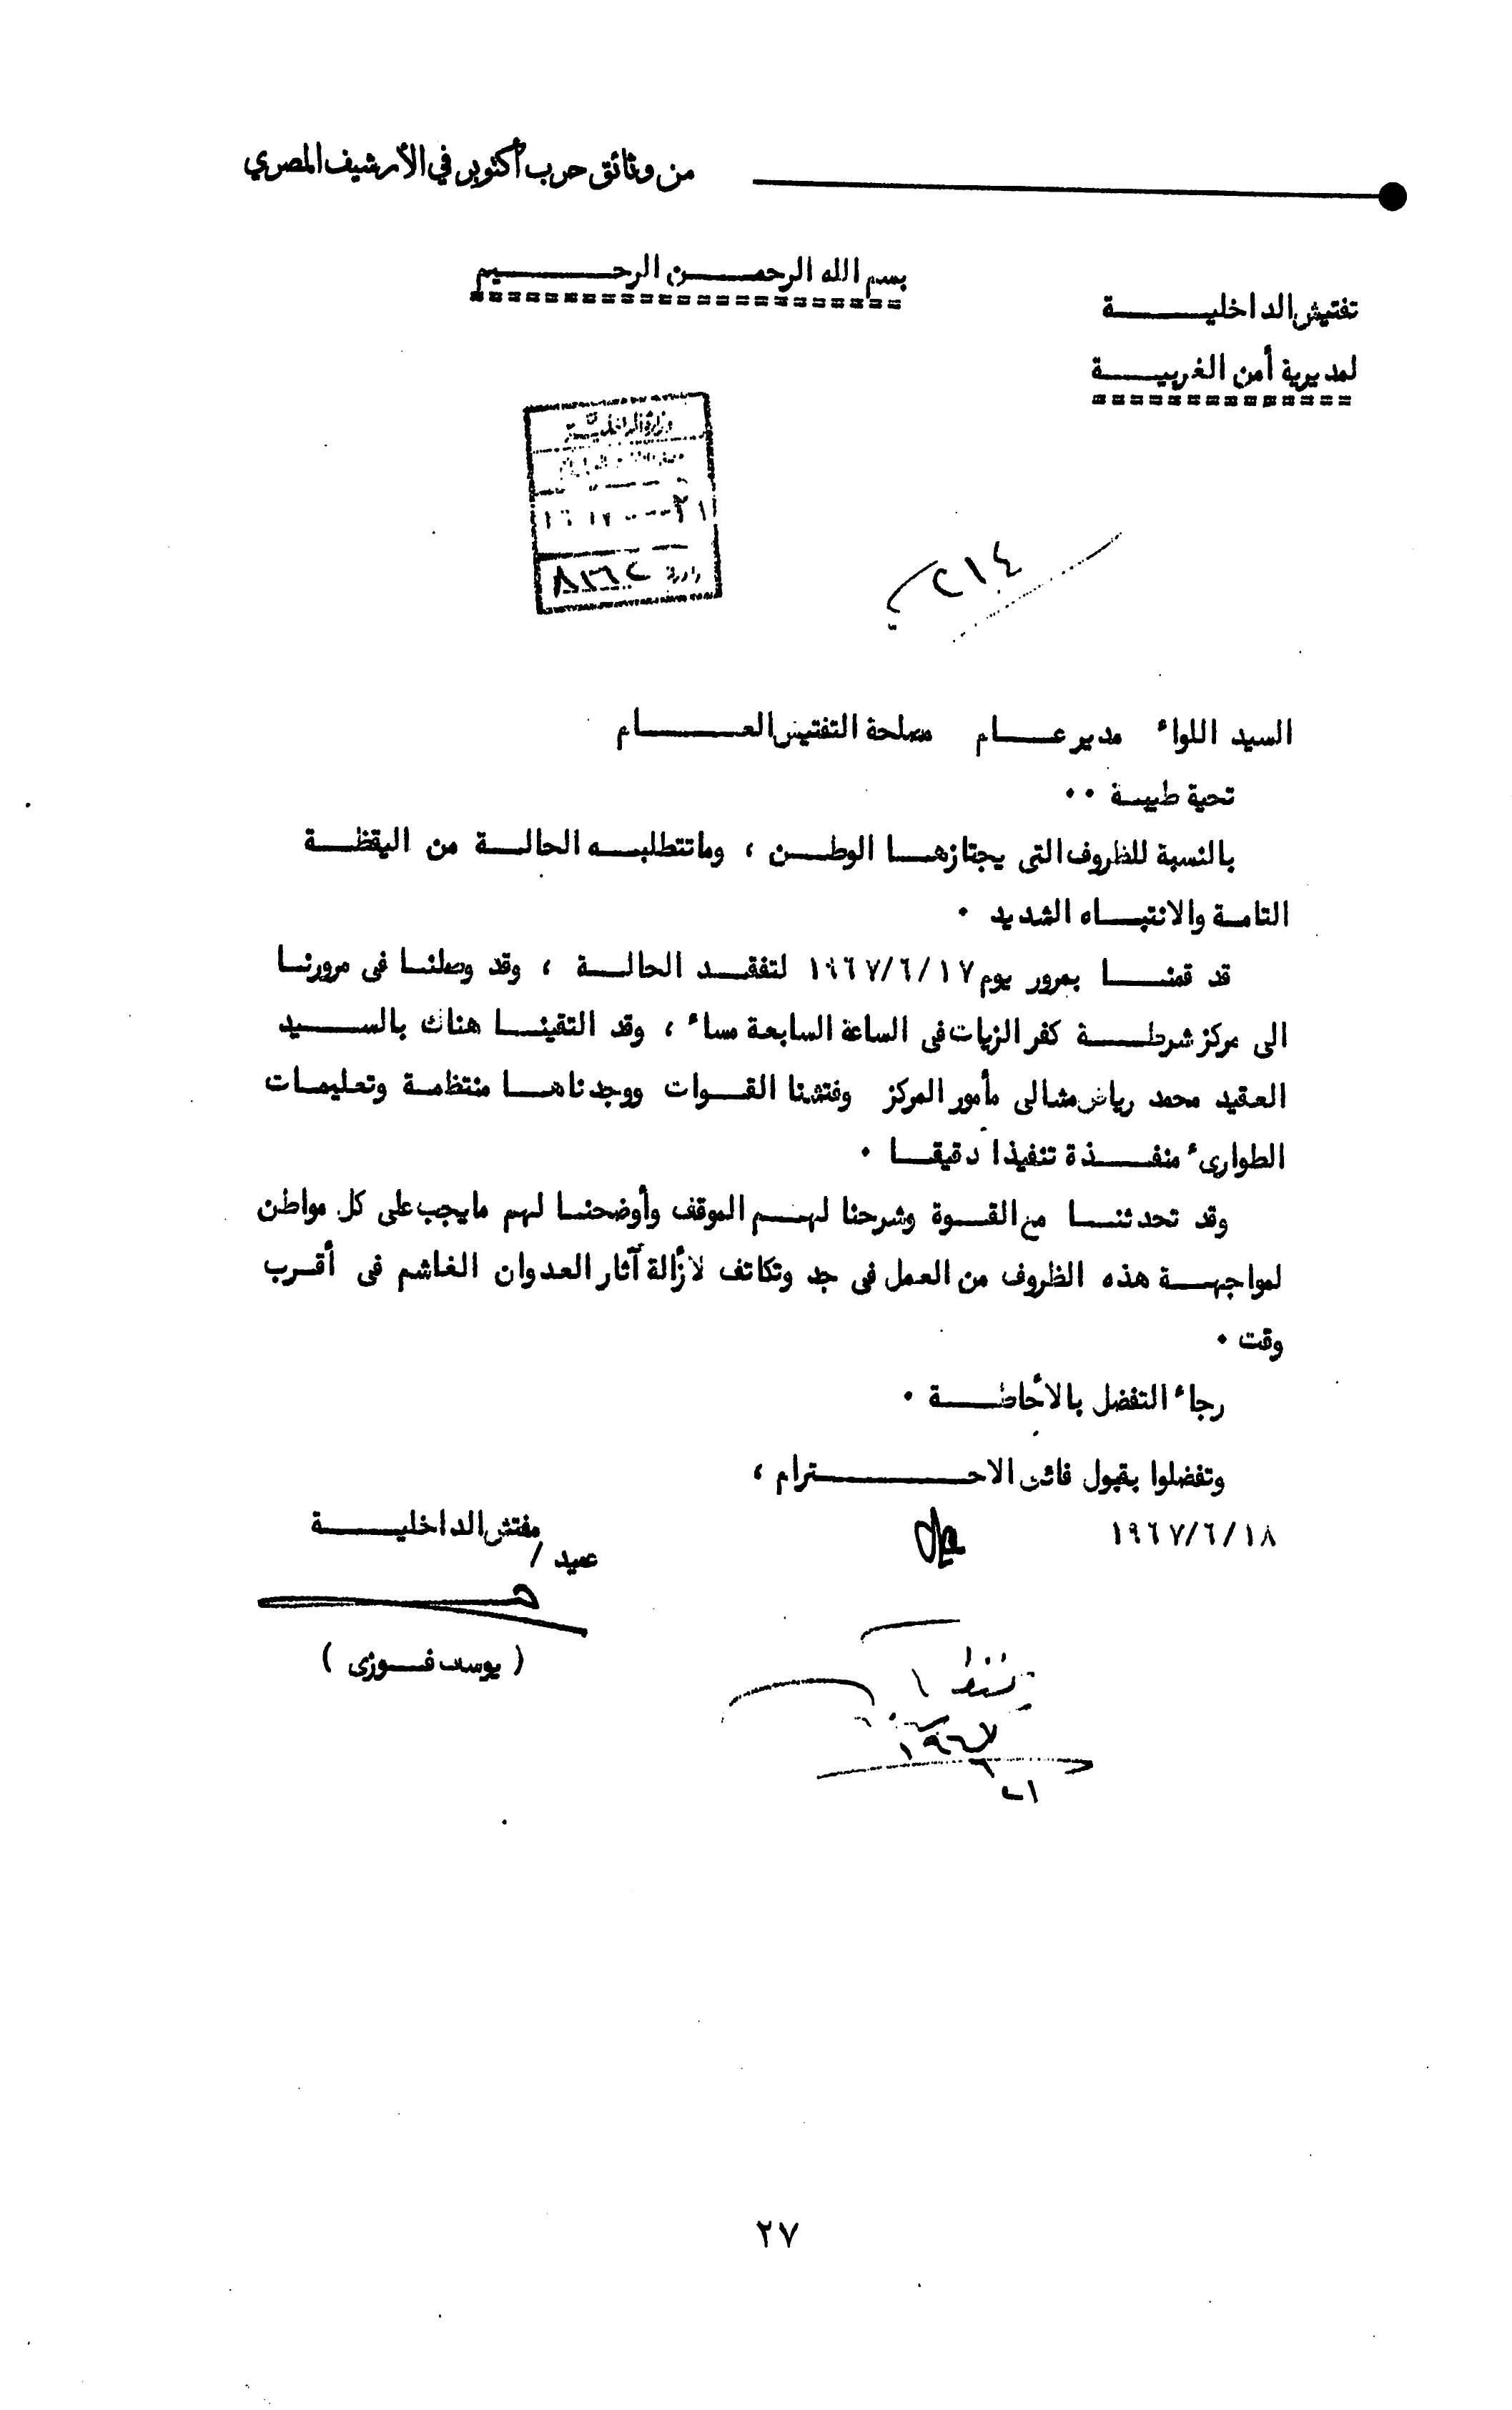 من وثائق حرب أكتوبر في الأرشيف المصري
بسم الله الرحمن الرحيم
تفتيش الداخلية
لمديرية أمن الغربية
وزارة الداخلية
٢١٤
السيد اللواء مدير عام مصلحة التفتيش العام
تحية طيبة ٠٠
بالنسبة للظروف التى يجتازها الوطن ، وماتتطلبه الحالة من اليقظة
التامة والانتباه الشديد ٠
قد قمنا بمرور يوم ١٩٦٧/٦/١٧ لتفقد الحالة ، وقد وصلنا فى مرورنا
الى مركز شرطة كفر الزيات فى الساعة السابعة مساء ، وقد التقينا هناك بالسيد
العقيد محمد رياض مشالى مأمور المركز وفتشنا القوات ووجدناها منتظمة وتعليمات
الطوارىء منفذة تنفيذا دقيقا ٠
وقد تحدثنا مع القوة وشرحنا لهم الموقف وأوضحنا لهم مايجب على كل مواطن
لمواجهة هذه الظروف من العمل فى جد وتكاتف لأزالة آثار العدوان الغاشم فى أقرب
وقت ٠
رجاء التفضل بالأحاطة ٠
وتفضلوا بقبول فائق الاحترام ،
١٩٦٧/٦/١٨
مفتش الداخلية
عميد /
( يوسف فوزى )
٢٧